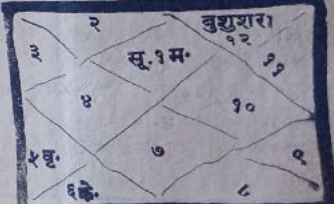 २ बुशुशरा
१२
३ सू.१म. ११
४ १०
५वृ. ७ ९
६के. ८